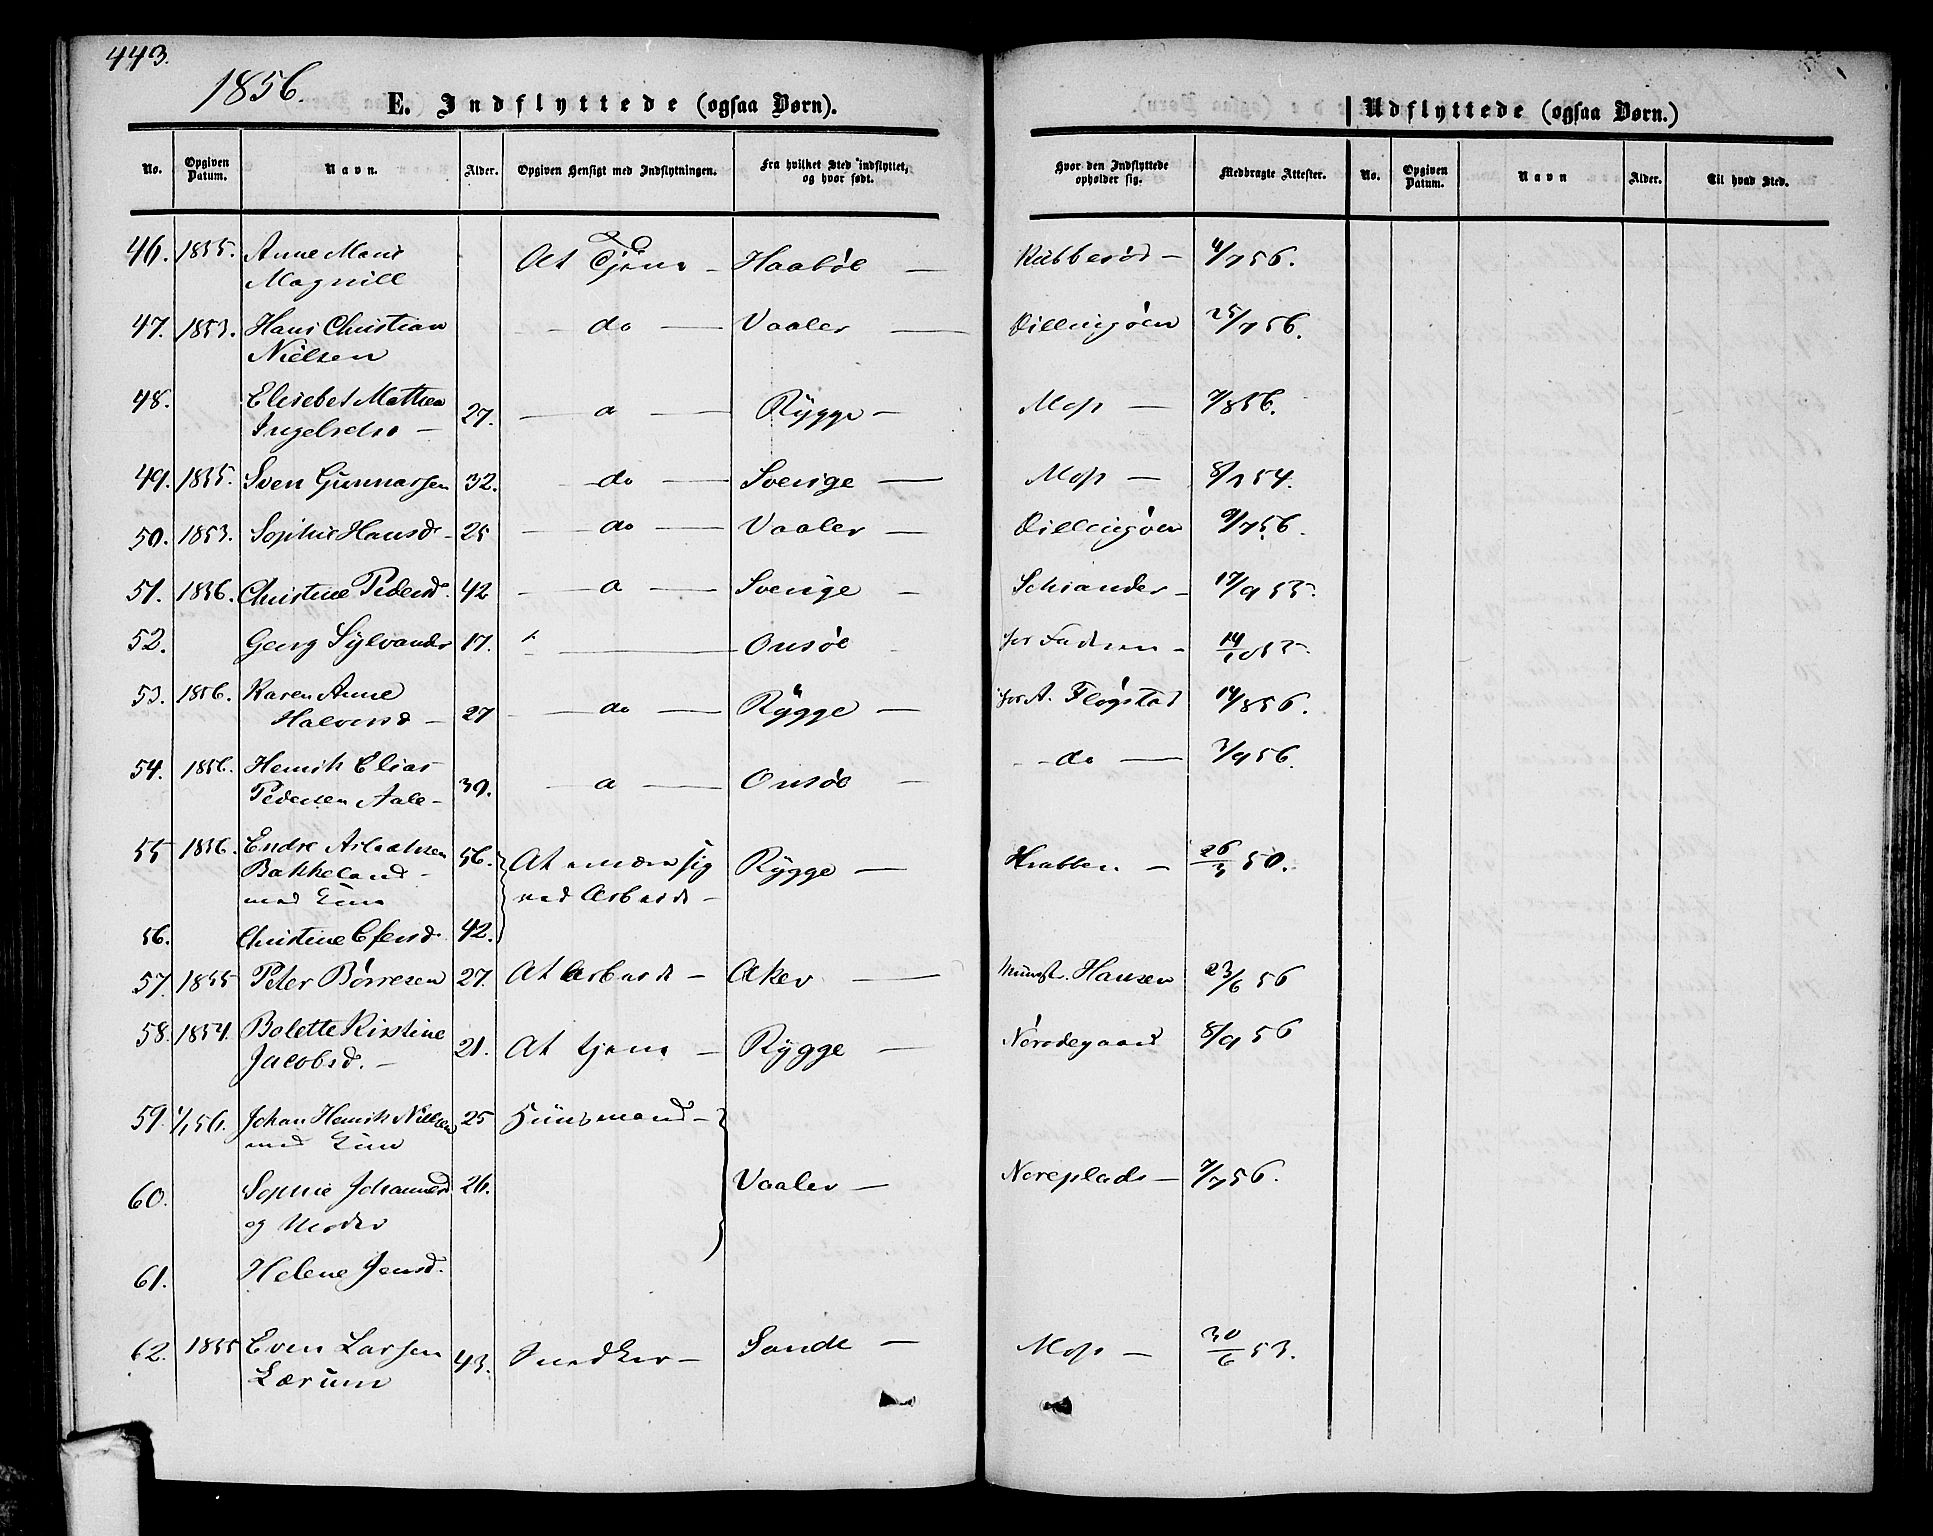 443.
1856.
E. Indflyttede (ogsaa Børn).
Udflyttede (ogsaa Børn.)
No. Opgiven Datum. Navn. Alder. Opgiven Hensigt med Indflytningen. Fra hvilket Sted indflyttet, og hvor født. Hvor den Indflyttede opholder sig. Medbragte Attester. No. Opgiven Datum. Navn Alder. Til hvad Sted.
46. 1855. Anne Marie At Tjene - Haabøl - 4/7 56.
Magnill
47. 1853. Hans Christian do Vaaler Dillingøen 25/7 56.
Nielsen
48. Elisebet Mathea 27. Rygge - Moss - 7/8 56.
49. 1855. Sven Gunnarsen 32. do Sverige Moss - 8/1 54.
50. 1853. Sophie Hansd - 25 do Vaaler Dillingøen 9/7 56.
51. 1856. Christine Pedersd. 42 Sverige - 17/9 55.
52. Georg Sylvander 17. Onsøe 14/10 55.
53. 1856. Karen Anne do Rygge - hos A. Fløgstad 14/8 56.
Halvorsd - 27
54. 1856. Henrik Elias 39. Onsøe - do 3/9 56.
Pedersen
55 1856. Endre Aslaksen 56. At nære sig Rygge - Krabben - 26/3 50.
Bakkeland - ved Arbeide -
med
56. Christine 42.
57. 1855 Peter Børresen 27. At Arbeide - Aker Hansen 23/6 56
58. 1854. Bolette Kirstine 21. At tjene - Rygge - 8/9 56
Jacobsd. -
59. 1/1 56. Johan Henrik Nielsen 25 Huusmand -
med
60. Sophie Johannesd 26. Vaaler - Noreplads - 7/7 56.
og Moder
61. Helene Jensd.
62. 1855 Even Larsen 43. Snedker - Sande - Moss - 30/6 53.
Lærum